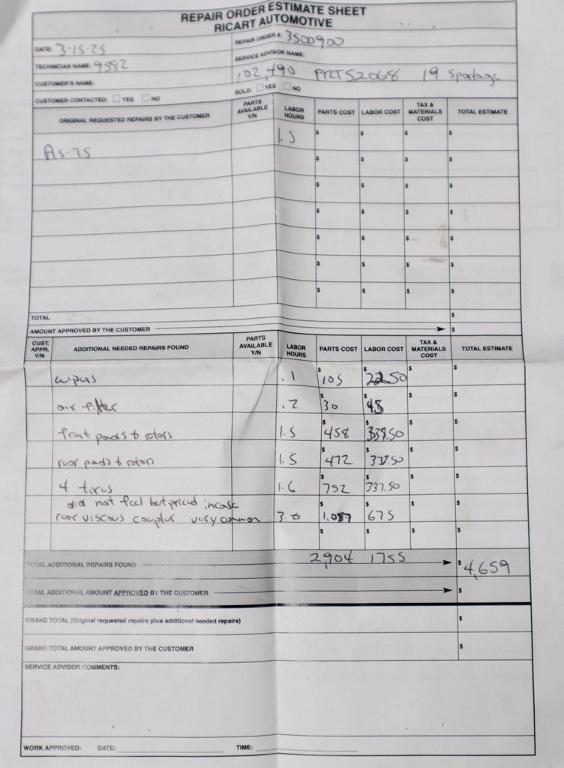 REPAIR ORDER ESTIMATE SHEET
RICART AUTOMOTIVE
DATE: 3-15-25
REPAIR ORDER #: 3500900
TECHNICIAN NAME: 9582
SERVICE ADVISOR NAME:
102,490 PZTS2068 19 Sportage
CUSTOMER'S NAME:
SOLD: YES NO
CUSTOMER CONTACTED: YES NO
ORIGINAL REQUESTED REPAIRS BY THE CUSTOMER PARTS AVAILABLE Y/N LABOR HOURS PARTS COST LABOR COST TAX & MATERIALS COST TOTAL ESTIMATE
1.5 $ $ $ $
As-75 $ $ $ $
$ $ $ $
$ $ $ $
$ $ $ $
$ $ $ $
$ $ $ $
TOTAL $
AMOUNT APPROVED BY THE CUSTOMER $
CUST. APPR. Y/N ADDITIONAL NEEDED REPAIRS FOUND PARTS AVAILABLE Y/N LABOR HOURS PARTS COST LABOR COST TAX & MATERIALS COST TOTAL ESTIMATE
wipers .1 $105 $22.50 $ $
air filter .2 $30 $45 $ $
front pads & rotors 1.5 $458 $337.50 $ $
rear pads & rotors 1.5 $472 $337.50 $ $
4 tires 1.6 $752 $337.50 $ $
did not feel but priced incase
rear viscous coupler very common 3.0 $1,087 $675 $ $
$ $ $ $
TOTAL ADDITIONAL REPAIRS FOUND 2,904 1755 $4,659
TOTAL ADDITIONAL AMOUNT APPROVED BY THE CUSTOMER $
GRAND TOTAL (Original requested repairs plus additional needed repairs) $
GRAND TOTAL AMOUNT APPROVED BY THE CUSTOMER $
SERVICE ADVISOR COMMENTS:
WORK APPROVED: DATE: TIME: